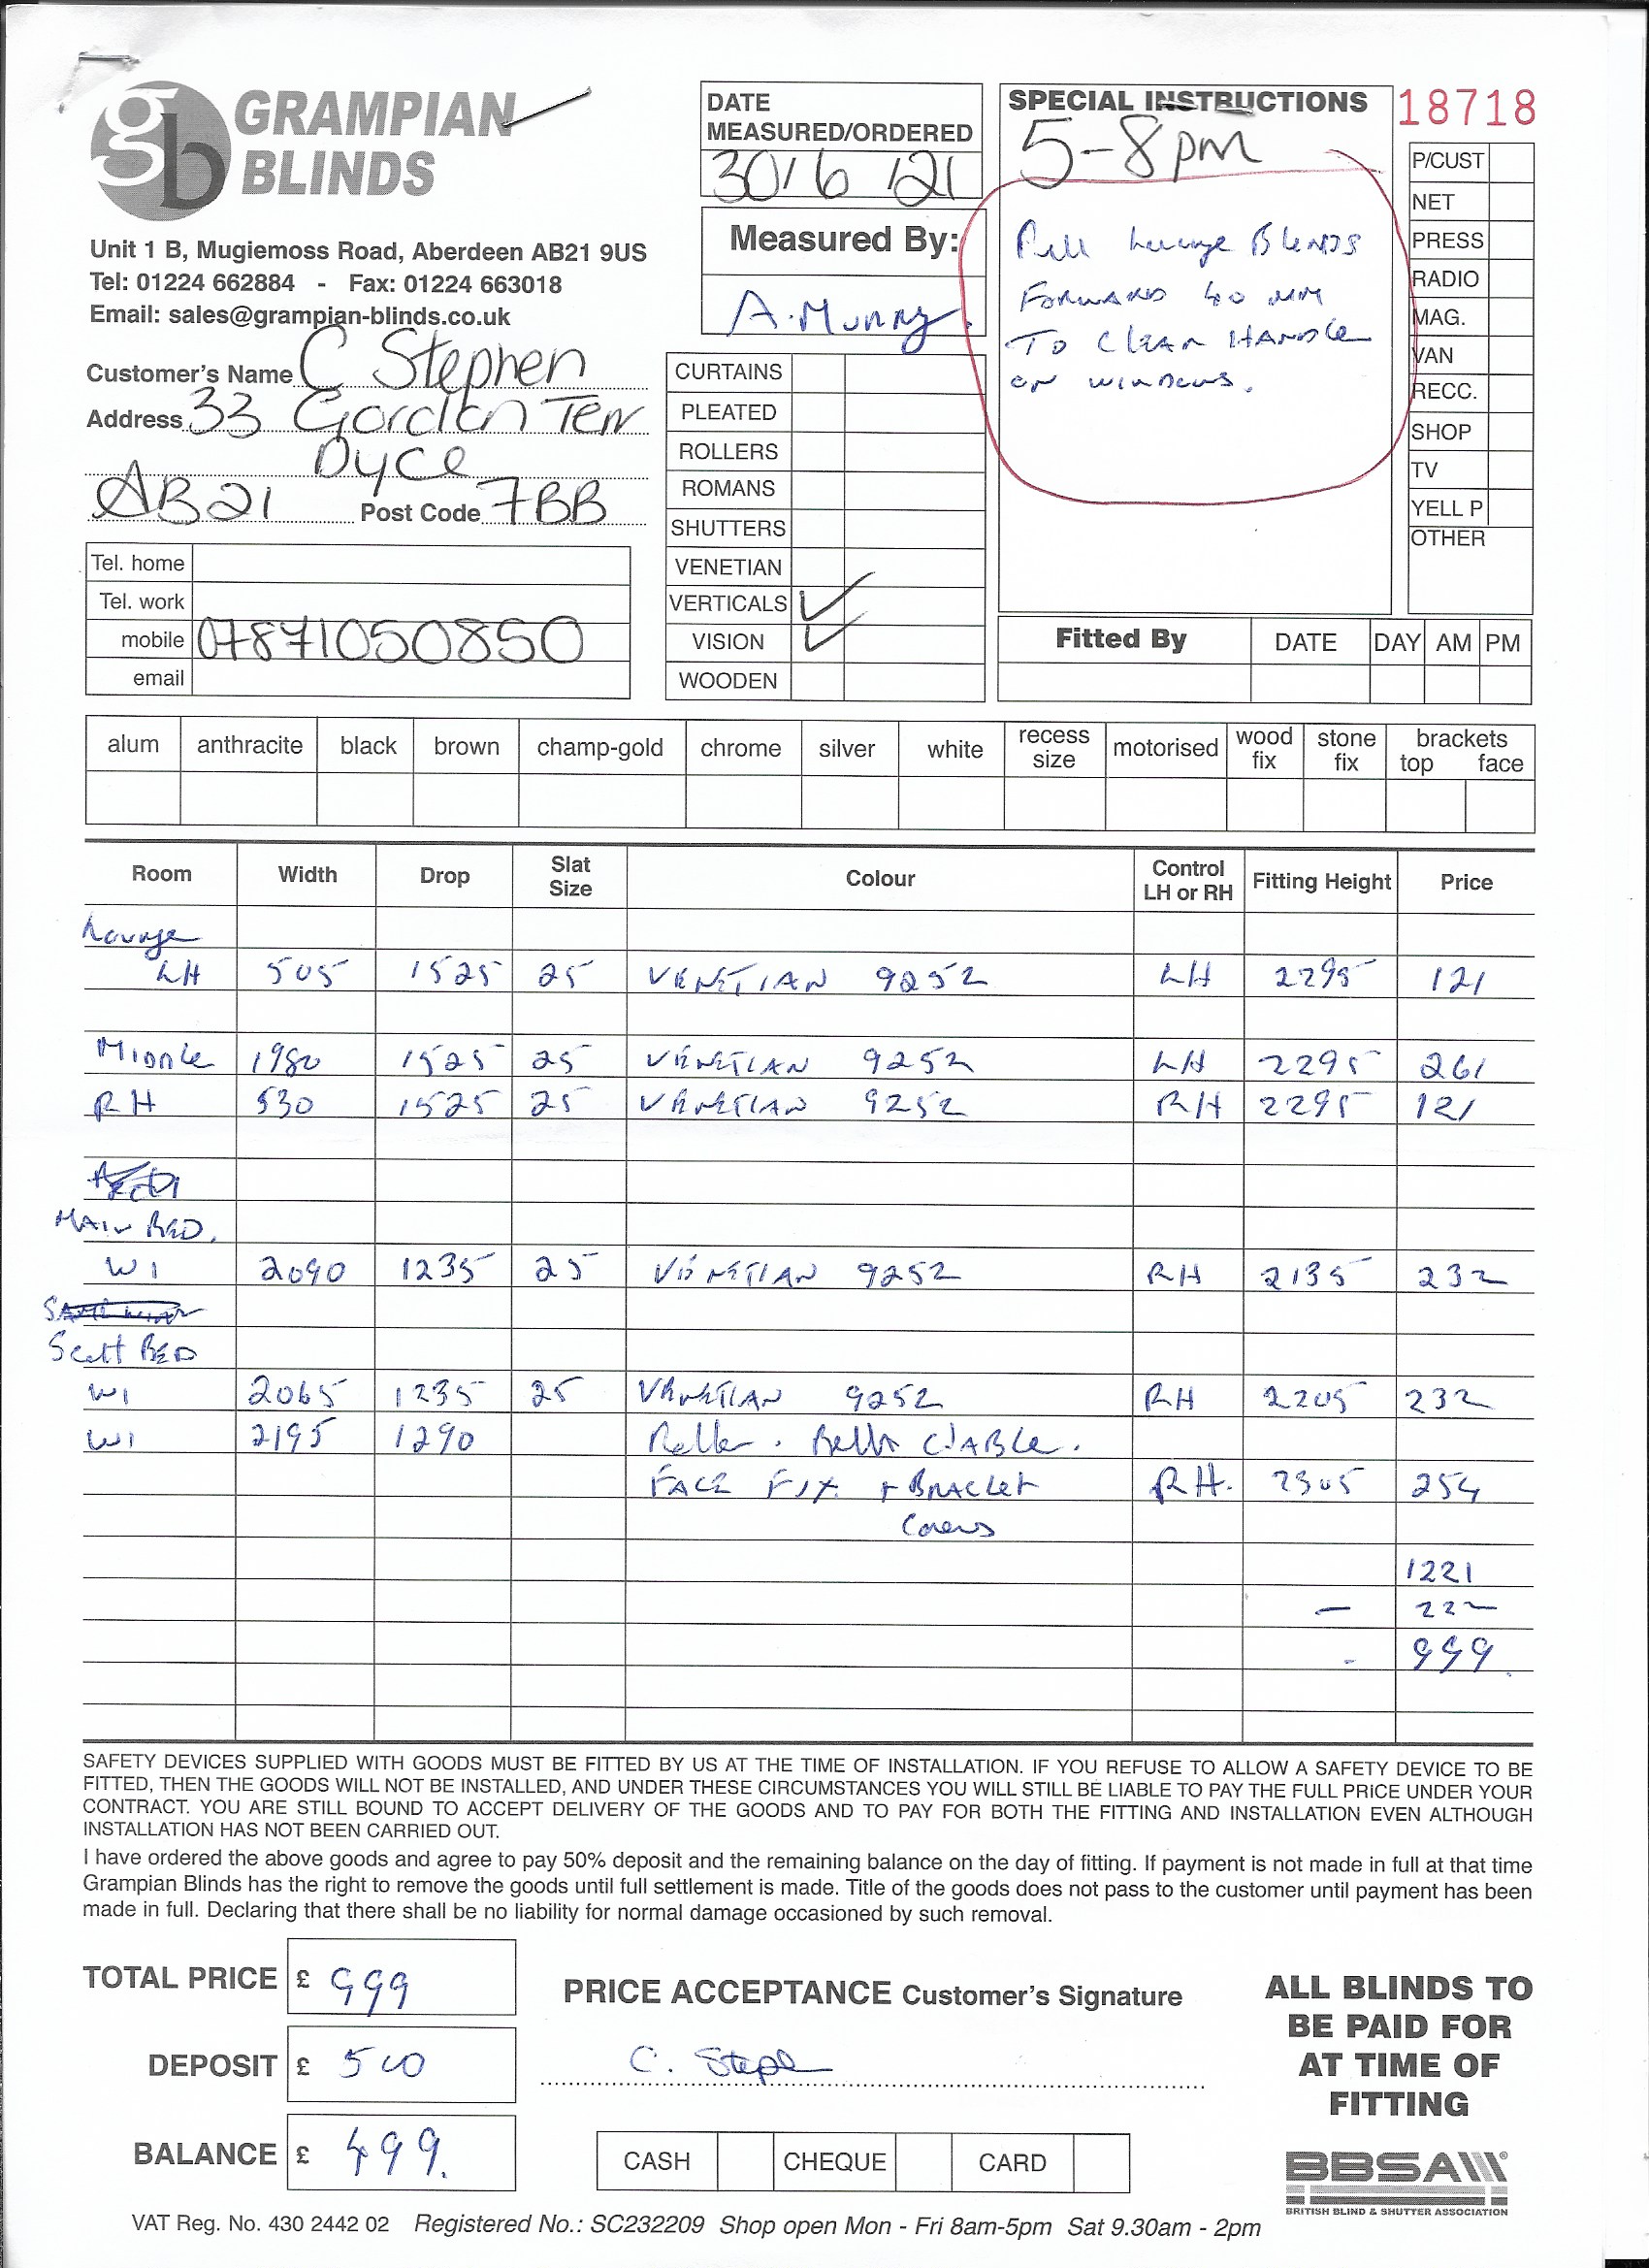 GRAMPIAN
BLINDS
Unit 1 B, Mugiemoss Road, Aberdeen AB21 9US
Tel: 01224 662884 - Fax: 01224 663018
Email: sales@grampian-blinds.co.uk
Customer's Name C Stephen
Address 33 Gordon Terr
Dyce
AB21 Post Code 7BB
Tel. home
Tel. work
mobile 07871050850
email
DATE
MEASURED/ORDERED
30/6/21
Measured By:
A. Murray.
CURTAINS
PLEATED
ROLLERS
ROMANS
SHUTTERS
VENETIAN
VERTICALS ✓
VISION ✓
WOODEN
SPECIAL INSTRUCTIONS
5-8pm
Pull Lounge Blinds
FORWARD 40 MM
TO CLEAR HANDLE
ON WINDOWS.
18718
P/CUST
NET
PRESS
RADIO
MAG.
VAN
RECC.
SHOP
TV
YELL P
OTHER
Fitted By DATE DAY AM PM
alum anthracite black brown champ-gold chrome silver white recess size motorised wood fix stone fix brackets top face
Room Width Drop Slat Size Colour Control LH or RH Fitting Height Price
Lounge
LH 505 1525 25 VENETIAN 9252 LH 2295 121
Middle 1980 1525 25 VENETIAN 9252 LH 2295 261
RH 530 1525 25 VENETIAN 9252 RH 2295 121
MAIN BED.
W1 2090 1235 25 VENETIAN 9252 RH 2135 232
Scott BED
W1 2065 1235 25 VENETIAN 9252 RH 2205 232
W1 2195 1290 Roller. Bella
FACE FIX + BRACKET RH. 2305 254
Covers
1221
- 222
- 999.
SAFETY DEVICES SUPPLIED WITH GOODS MUST BE FITTED BY US AT THE TIME OF INSTALLATION. IF YOU REFUSE TO ALLOW A SAFETY DEVICE TO BE
FITTED, THEN THE GOODS WILL NOT BE INSTALLED, AND UNDER THESE CIRCUMSTANCES YOU WILL STILL BE LIABLE TO PAY THE FULL PRICE UNDER YOUR
CONTRACT. YOU ARE STILL BOUND TO ACCEPT DELIVERY OF THE GOODS AND TO PAY FOR BOTH THE FITTING AND INSTALLATION EVEN ALTHOUGH
INSTALLATION HAS NOT BEEN CARRIED OUT.
I have ordered the above goods and agree to pay 50% deposit and the remaining balance on the day of fitting. If payment is not made in full at that time
Grampian Blinds has the right to remove the goods until full settlement is made. Title of the goods does not pass to the customer until payment has been
made in full. Declaring that there shall be no liability for normal damage occasioned by such removal.
TOTAL PRICE £ 999
DEPOSIT £ 500
BALANCE £ 499.
PRICE ACCEPTANCE Customer's Signature
C. Steph
CASH CHEQUE CARD
ALL BLINDS TO
BE PAID FOR
AT TIME OF
FITTING
BBSA
BRITISH BLIND & SHUTTER ASSOCIATION
VAT Reg. No. 430 2442 02 Registered No.: SC232209 Shop open Mon - Fri 8am-5pm Sat 9.30am - 2pm